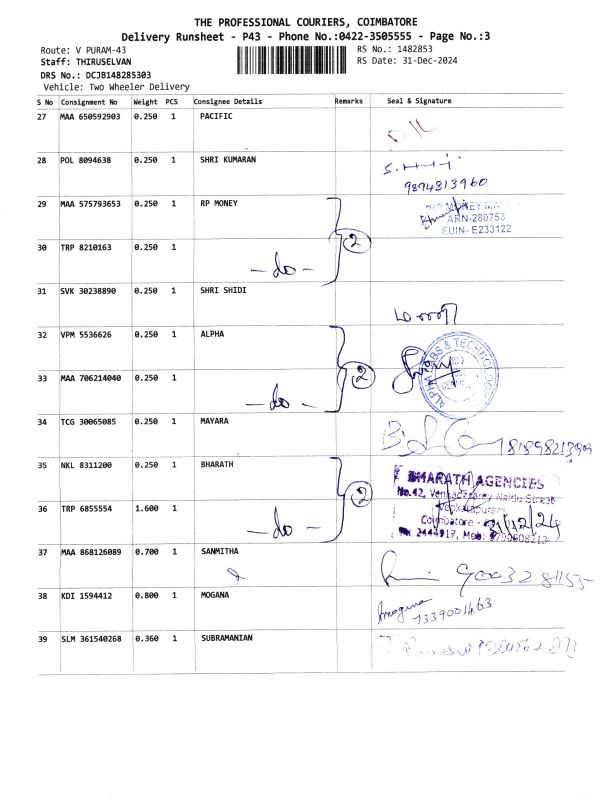 THE PROFESSIONAL COURIERS, COIMBATORE
Delivery Runsheet - P43 - Phone No.:0422-3505555 - Page No.:3
Route: V PURAM-43 RS No.: 1482853
Staff: THIRUSELVAN RS Date: 31-Dec-2024
DRS No.: DCJB148285303
Vehicle: Two Wheeler Delivery
S No Consignment No Weight PCS Consignee Details Remarks Seal & Signature
27 MAA 650592903 0.250 1 PACIFIC
28 POL 8094638 0.250 1 SHRI KUMARAN
9894813960
29 MAA 575793653 0.250 1 RP MONEY
ARN-280753
EUIN- E233122
30 TRP 8210163 0.250 1
- do - 2
31 SVK 30238890 0.250 1 SHRI SHIDI
32 VPM 5536626 0.250 1 ALPHA
33 MAA 706214040 0.250 1
- do - 2
34 TCG 30065085 0.250 1 MAYARA
35 NKL 8311200 0.250 1 BHARATH BHARATH AGENCIES
No.42, Venkadasamy Naidu Street
Venkatapuram
36 TRP 6855554 1.600 1
Coimbatore - 31/12/24
- do - 2
37 MAA 868126089 0.700 1 SANMITHA
38 KDI 1594412 0.800 1 MOGANA
Mogana
39 SLM 361540268 0.360 1 SUBRAMANIAN